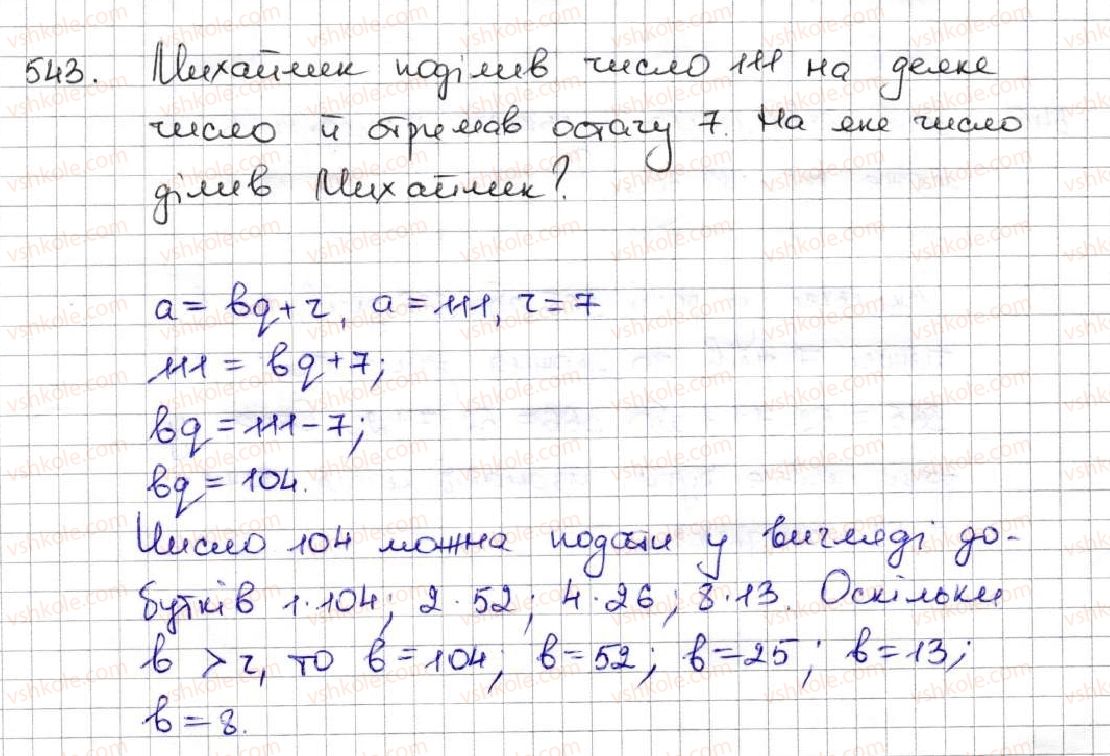 543. Михайлик поділив число 111 на деяке
число й отримав остачу 7. На яке число
ділив Михайлик?
a = bq + r, a = 111, r = 7
111 = bq + 7;
bq = 111 - 7;
bq = 104.
Число 104 можна подати у вигляді до-
бутків 1·104; 2·52; 4·26; 8·13. Оскільки
b > r, то b = 104; b = 52; b = 25; b = 13;
b = 8.